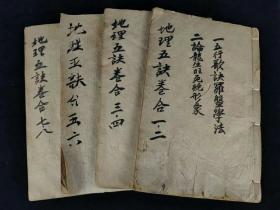 一五行歌訣羅盤學法
二論龍生旺死絕形象
地理五訣卷合一·二
地理五訣卷合三·四
地理五訣卷合五六
地理五訣卷合七八